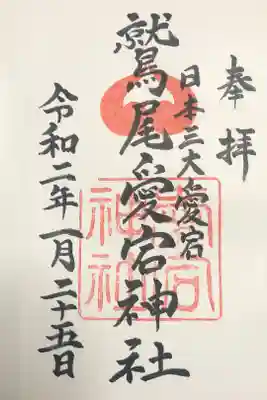 奉拝
日本三大愛宕
鷲尾愛宕神社
令和二年一月二十五日
愛宕
神社